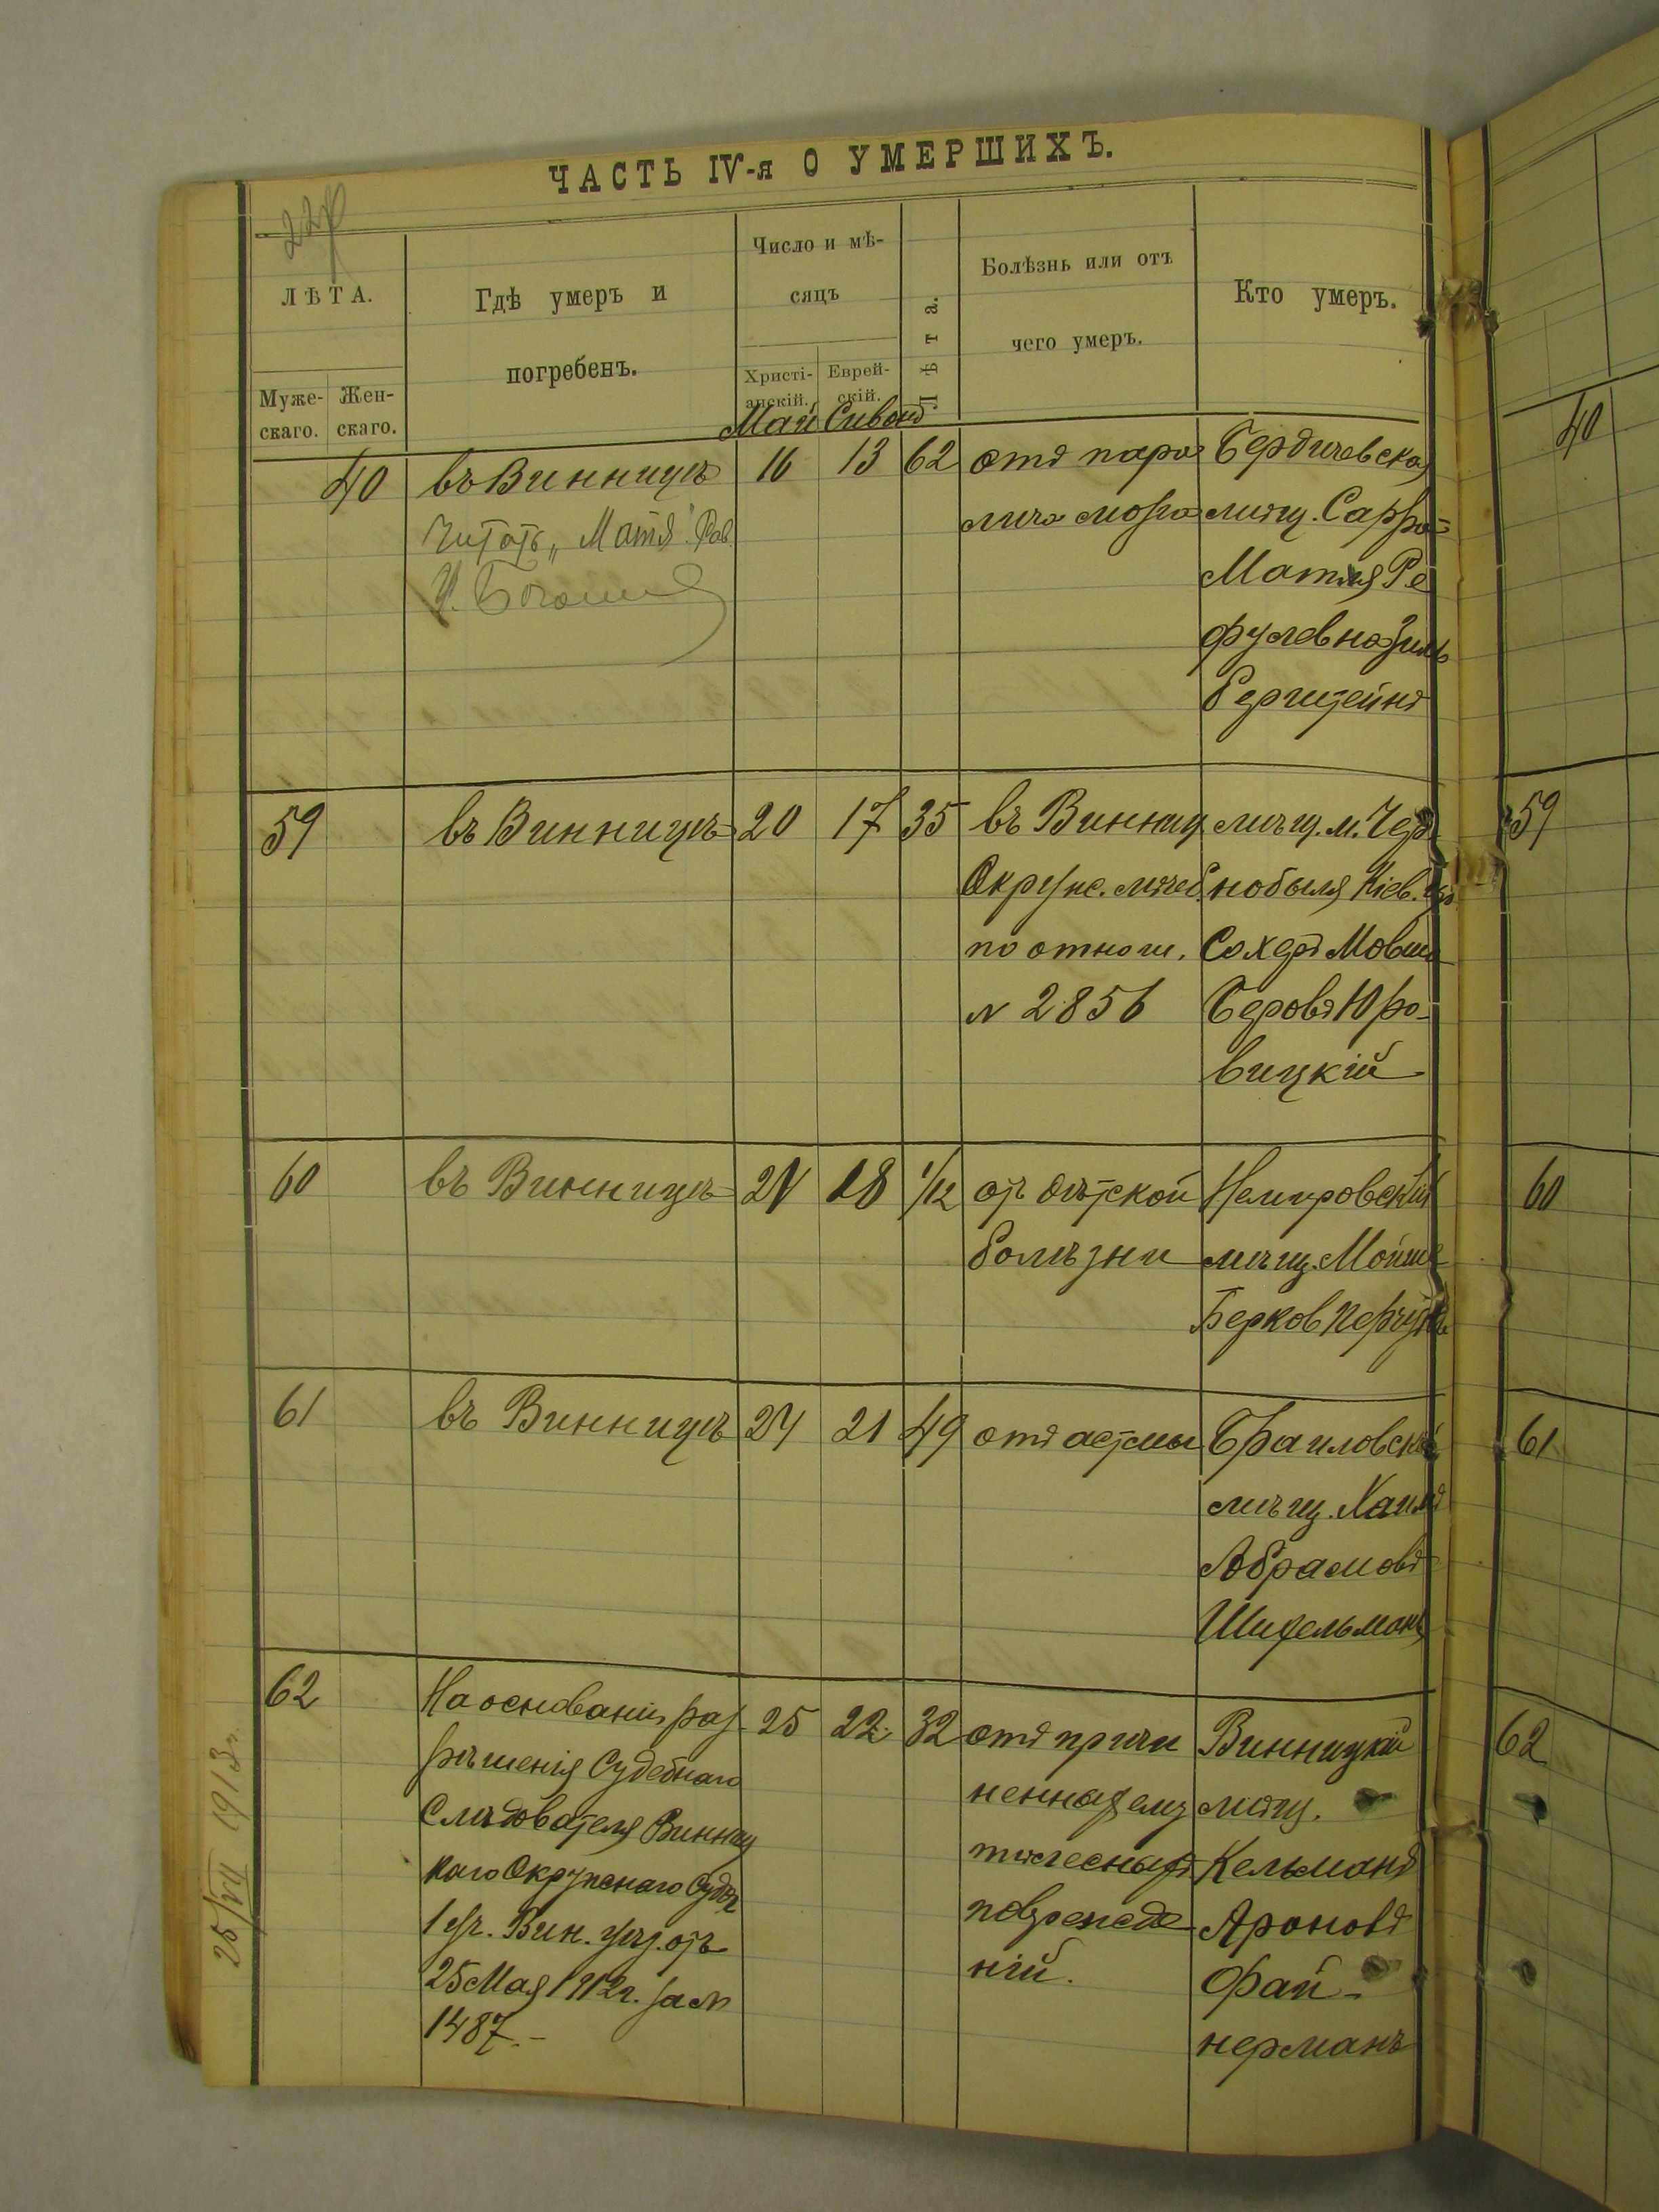 ЧАСТЬ IV-я О УМЕРШИХЪ.
ЛѢТА.
Муже-
скаго.
Жен-
скаго.
Гдѣ умеръ и
погребенъ.
Число и мѣ-
сяцъ
Христі-
анскій.
Еврей-
скій.
Лѣта.
Болѣзнь или отъ
чего умеръ.
Кто умеръ.
Май Сивонъ
40
въ Винницѣ
Читать „Матя" Рав.
16
13
62
отъ пара
лича мозга
Бердичевская
мѣщ. Сарра-
Матля Ре
фулевна Зиль
берштейнъ
40
59
въ Винницѣ
20
17
35
въ Винниц
Окруж. лѣчеб.
по отнош.
№ 2856
мѣщ. м. Чер
нобыля Кіев. губ
Сахеръ Мовша
Беровъ Юро-
вицкій
59
60
въ Винницѣ
21
18
1/12
отъ дѣтской
болѣзни
Немировскій
мѣщ. Мойше
Берков
60
61
въ Винницѣ
24
21
49
отъ астмы
Браиловскій
мѣщ. Хаимъ
Абрамовъ
Шифельманъ
61
62
На основаніи раз
рѣшенія Судебнаго
Слѣдователя Винниц
каго Окружнаго Суда
1 уч. Вин. уѣз. отъ
25 Мая 1912 г. за №
1487.-
25
22
32
отъ причи
ненныхъ ему
тѣлесныхъ
поврежде
ній.
Винницкій
мѣщ.
Кельманъ
Ароновъ
Фай-
нерманъ
62
25/VII 1913 г.